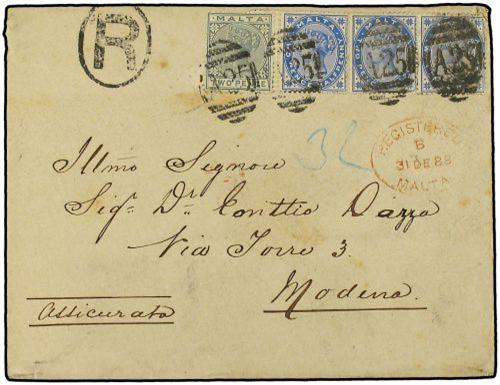 R
MALTA MALTA MALTA MALTA
TWO PENCE
A25 A25 A25 A25
32
REGISTERED
B
31 DE 88
MALTA
Illmo Signore
Sigr. Dr. Dazza
Via Torre 3.
Modena.
Assicurata